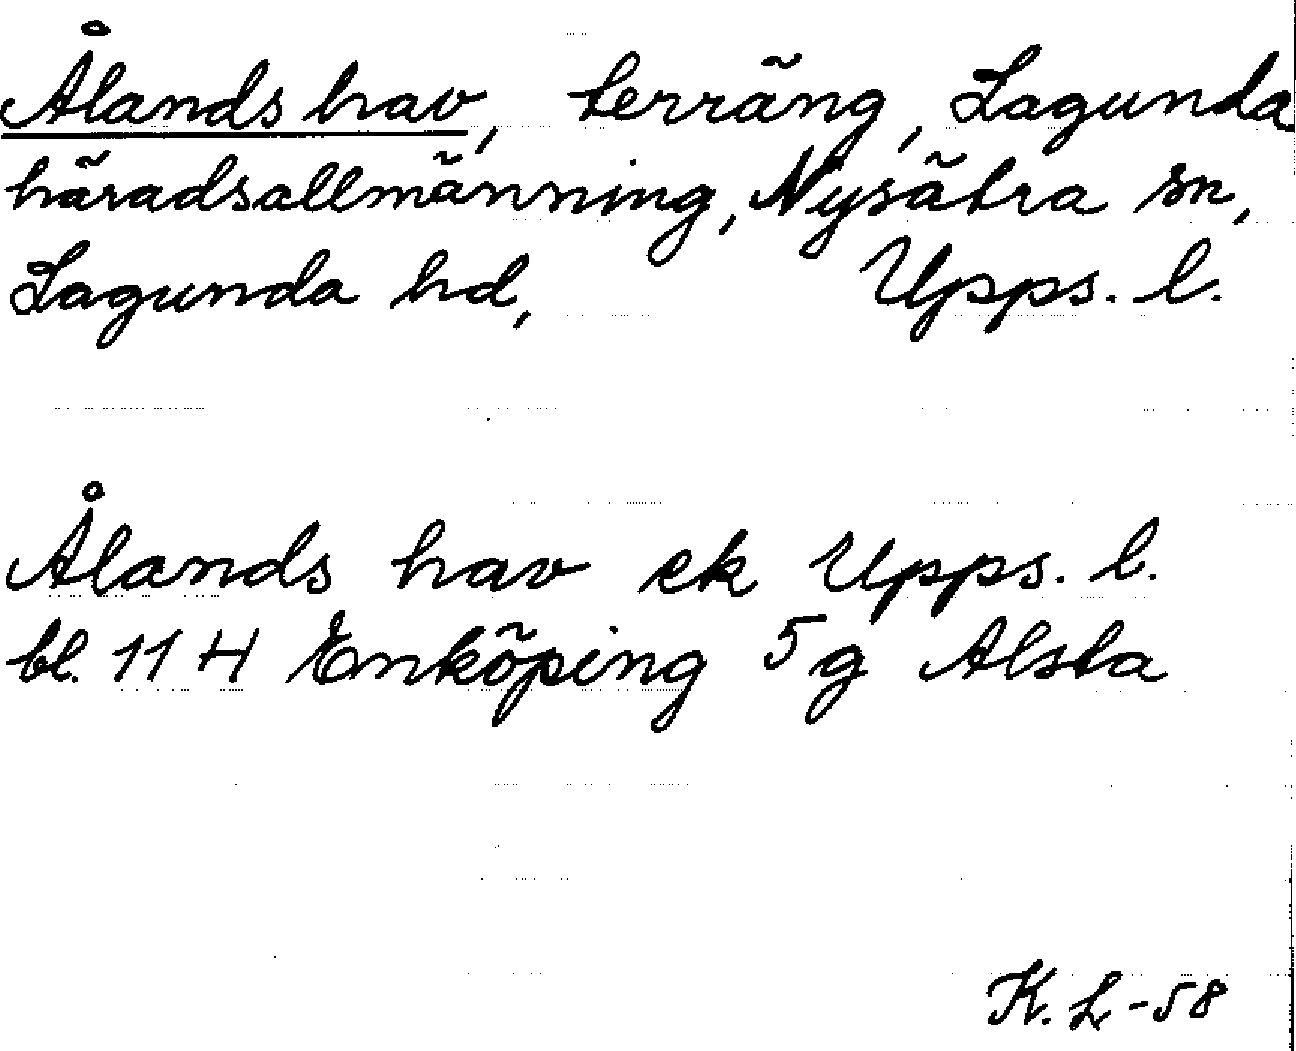 Ålands hav, terräng, Lagunda
häradsallmänning, Nysätra sn,
Lagunda hd, Upps. l.
Ålands hav ek Upps. l.
bl. 11 H Enköping 5 g Alsta
K. L -58